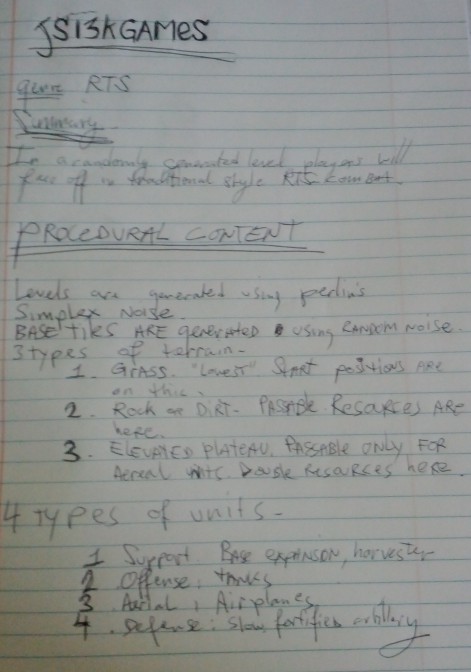 JS13KGAMES
genre RTS
Summary
In a randomly generated level players will
face off in traditional style RTS Kombat
PROCEDURAL CONTENT
Levels are generated using perlin's
Simplex Noise.
BASE tiles ARE generated using RANDOM NOISE.
3 types of terrain-
1. GRASS. "Lowest" START positions ARE
on this.
2. Rock or DIRT. PASSABLE Resources ARE
here.
3. ELEVATED PLATEAU. PASSABLE ONLY FOR
Aereal units. Double resources here.
4 types of units-
1 Support Base expansion, harvester
2 Offense: tanks
3 Aerial: Airplanes
4. Defense: Slow, fortifies artillary